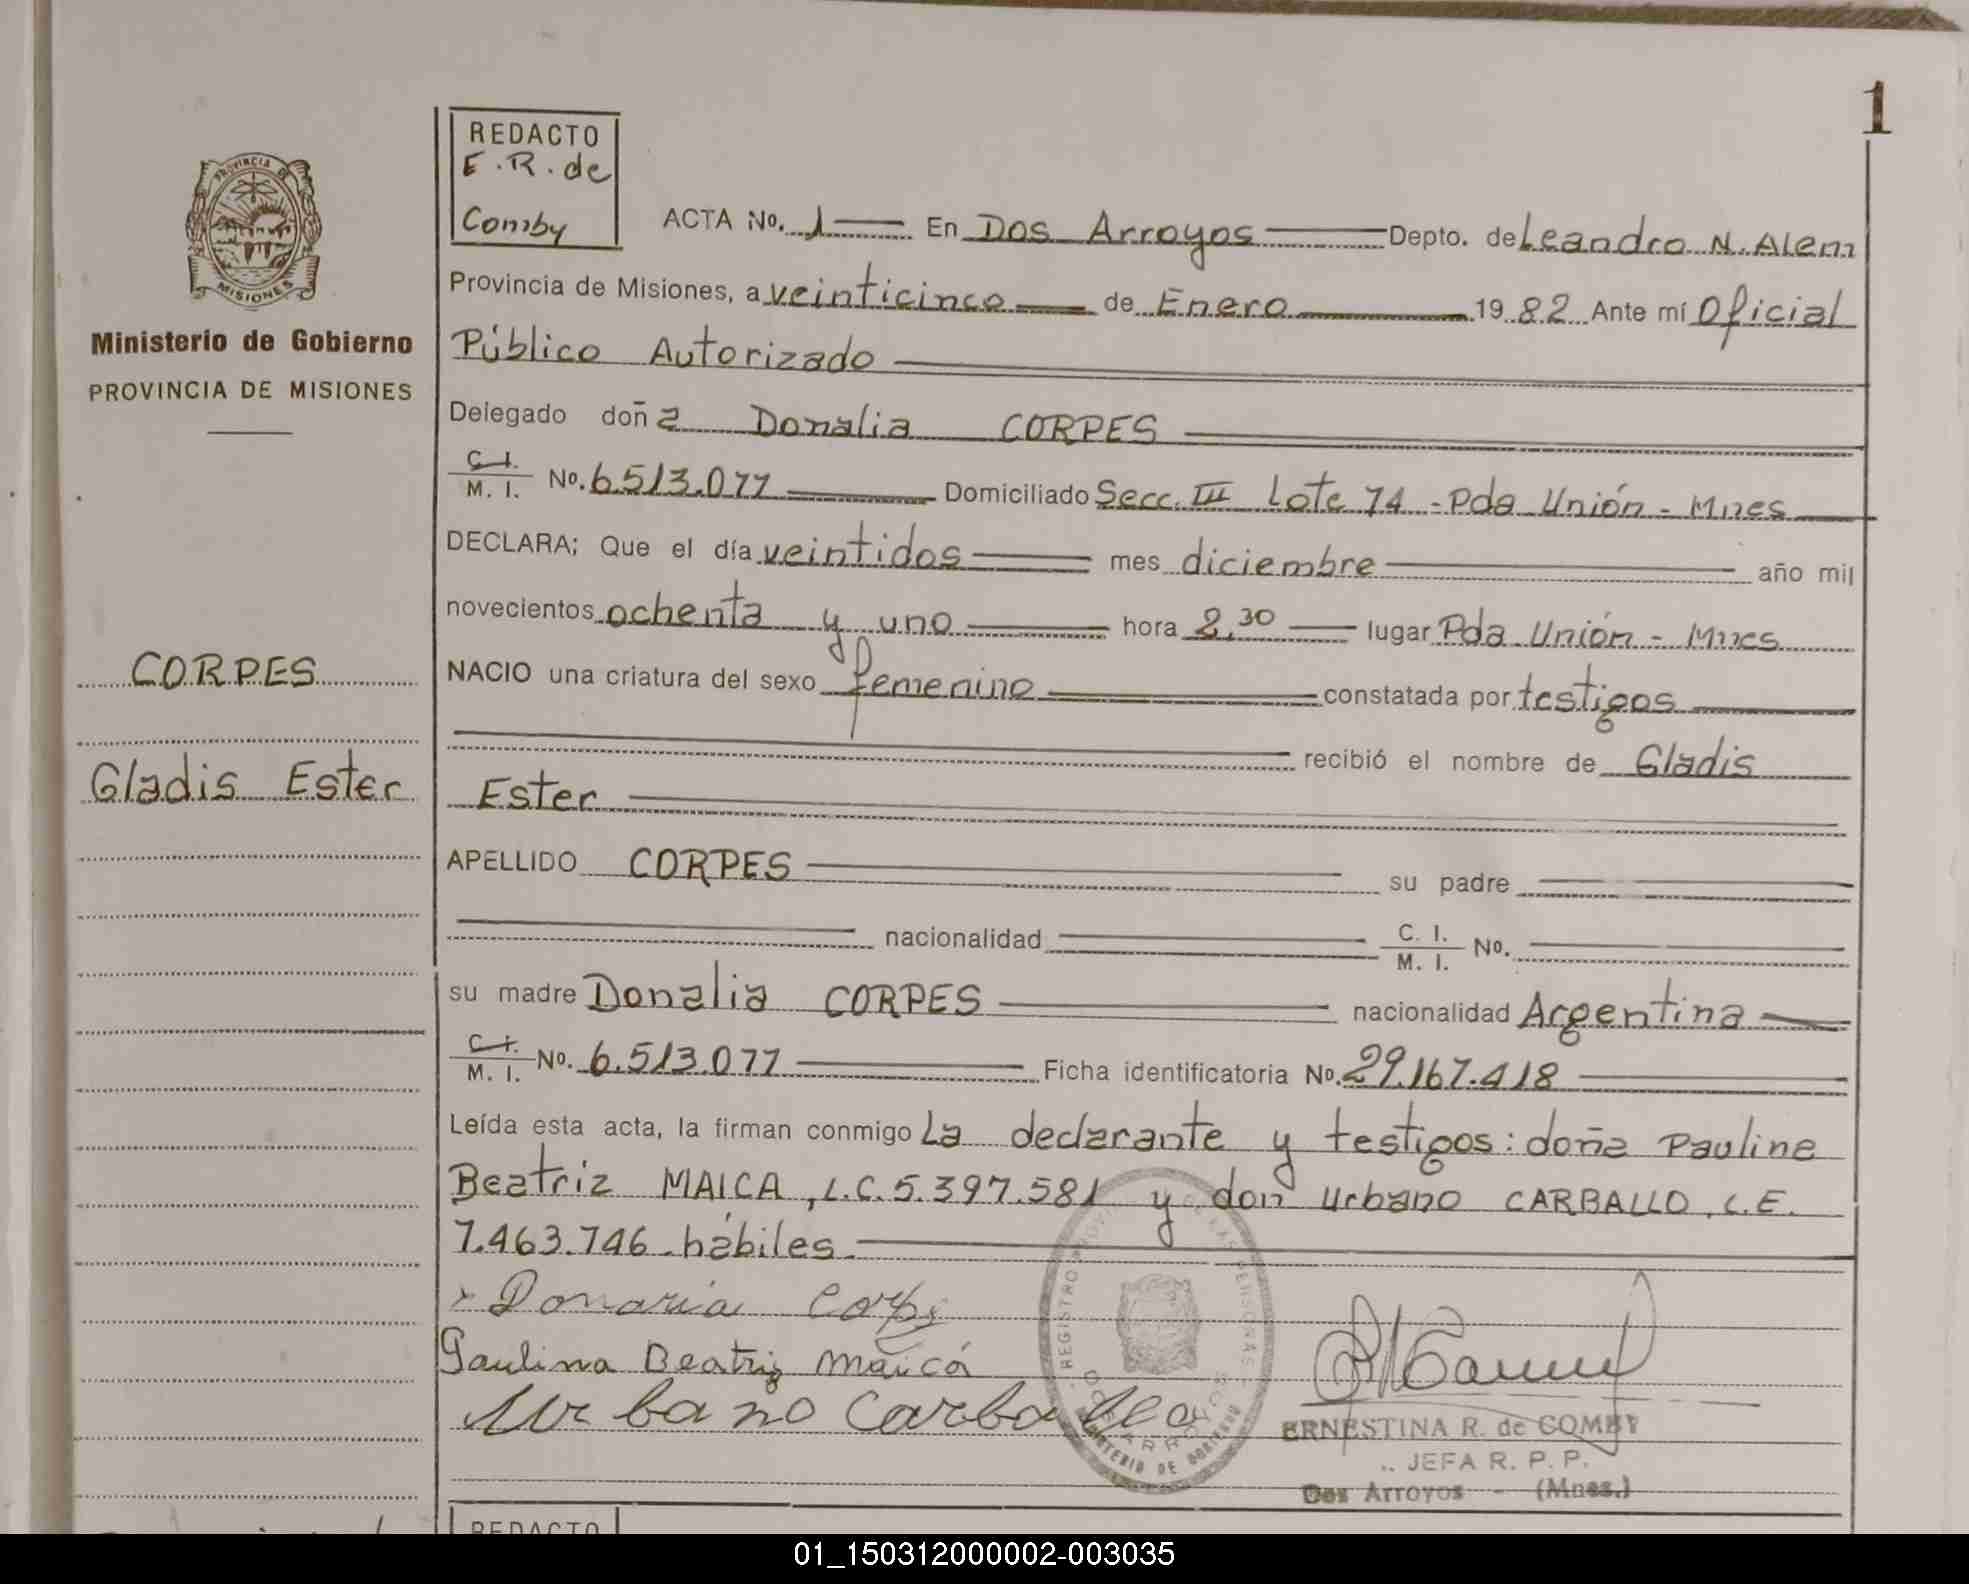 1
REDACTO
E.R. de
Comby
PROVINCIA DE
MISIONES
Ministerio de Gobierno
PROVINCIA DE MISIONES
CORPES
Gladis Ester
ACTA No. 1 En Dos Arroyos Depto. de Leandro N. Alem
Provincia de Misiones, a veinticinco de Enero 1982 Ante mí Oficial
Público Autorizado
Delegado doña Donalia CORPES
C.I. M. I. No. 6.513.077 Domiciliado Secc. III Lote 74 - Pda Unión - Mnes
DECLARA; Que el día veintidos mes diciembre año mil
novecientos ochenta y uno hora 2,30 lugar Pda Unión - Mnes
NACIO una criatura del sexo femenino constatada por testigos
recibió el nombre de Gladis
Ester
APELLIDO CORPES su padre
nacionalidad C. I. M. I. No.
su madre Donalia CORPES nacionalidad Argentina
C.I. M. I. No. 6.513.077 Ficha identificatoria No. 29.167.418
Leída esta acta, la firman conmigo La declarante y testigos: doña Pauline
Beatriz MAICA, L.C. 5.397.581 y don Urbano CARBALLO, L.E.
7.463.746. hábiles.
Donaria Corpes
Paulina Beatriz Maicá
Urbano Carballo
REGISTRO PROVINCIAL DE LAS PERSONAS
DOS ARROYOS
MINISTERIO DE GOBIERNO
ERNESTINA R. de COMBY
JEFA R. P. P.
Dos Arroyos - (Mnes.)
REDACTO
01_150312000002-003035